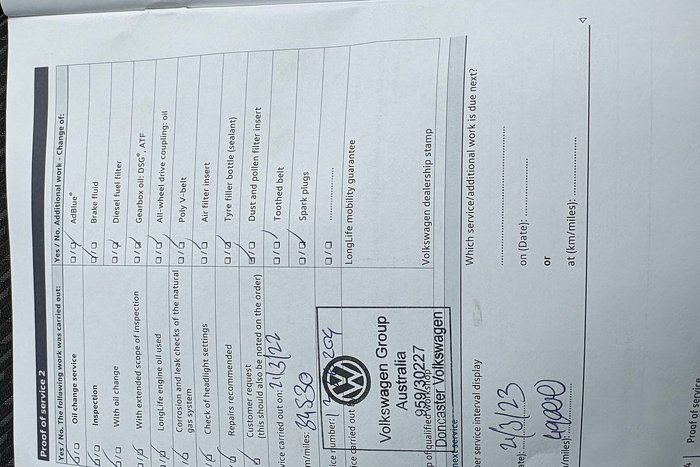 Proof of service 2
Yes / No. The following work was carried out:
Oil change service
Inspection
With oil change
With extended scope of inspection
LongLife engine oil used
Corrosion and leak checks of the natural
gas system
Check of headlight settings
Repairs recommended
Customer request
(this should also be noted on the order)
vice carried out on: 21/3/22
m/miles): 34530
ice number:
ice carried out
Volkswagen Group
Australia
959/30227
Doncaster Volkswagen
p of qualified workshop
next service
er service interval display
ate): 21/3/23
miles): 49000
Yes / No. Additional work - Change of:
AdBlue®
Brake fluid
Diesel fuel filter
Gearbox oil: DSG®, ATF
All-wheel drive coupling: oil
Poly V-belt
Air filter insert
Tyre filler bottle (sealant)
Dust and pollen filter insert
Toothed belt
Spark plugs
LongLife mobility guarantee
Volkswagen dealership stamp
Which service/additional work is due next?
on (Date):
or
at (km/miles):
Proof of service